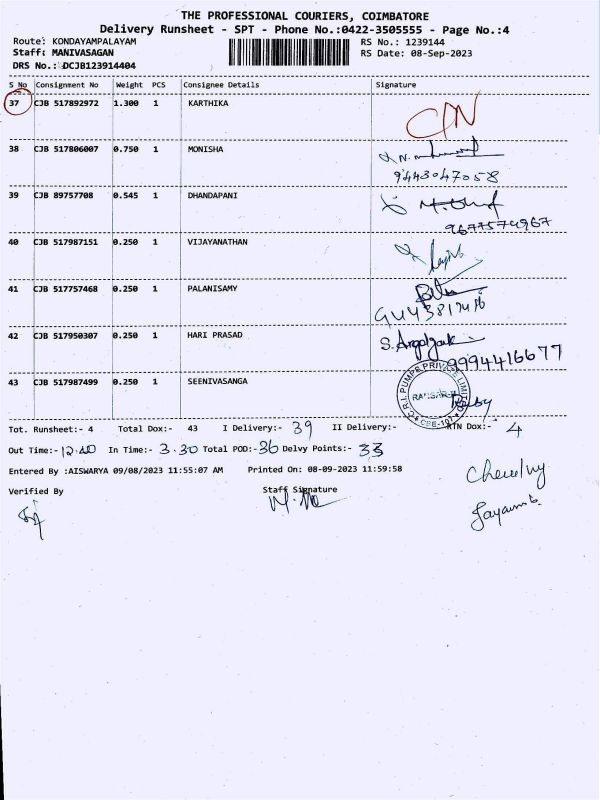 THE PROFESSIONAL COURIERS, COIMBATORE
Delivery Runsheet - SPT - Phone No.:0422-3505555 - Page No.:4
Route: KONDAYAMPALAYAM RS No.: 1239144
Staff: MANIVASAGAN RS Date: 08-Sep-2023
DRS No.: DCJB123914404
S No Consignment No Weight PCS Consignee Details Signature
37 CJB 517892972 1.300 1 KARTHIKA
38 CJB 517806007 0.750 1 MONISHA
9443047058
39 CJB 89757708 0.545 1 DHANDAPANI
9677574967
40 CJB 517987151 0.250 1 VIJAYANATHAN
41 CJB 517757468 0.250 1 PALANISAMY
42 CJB 517950307 0.250 1 HARI PRASAD
9994416677
43 CJB 517987499 0.250 1 SEENIVASANGA
C.R.I. PUMPS PRIVATE LIMITED
Tot. Runsheet:- 4 Total Dox:- 43 I Delivery:- 39 II Delivery:- RTN Dox:- 4
Out Time:- 12.40 In Time:- 3.30 Total POD:- 36 Delvy Points:- 33
Entered By :AISWARYA 09/08/2023 11:55:07 AM Printed On: 08-09-2023 11:59:58
Verified By Staff Signature